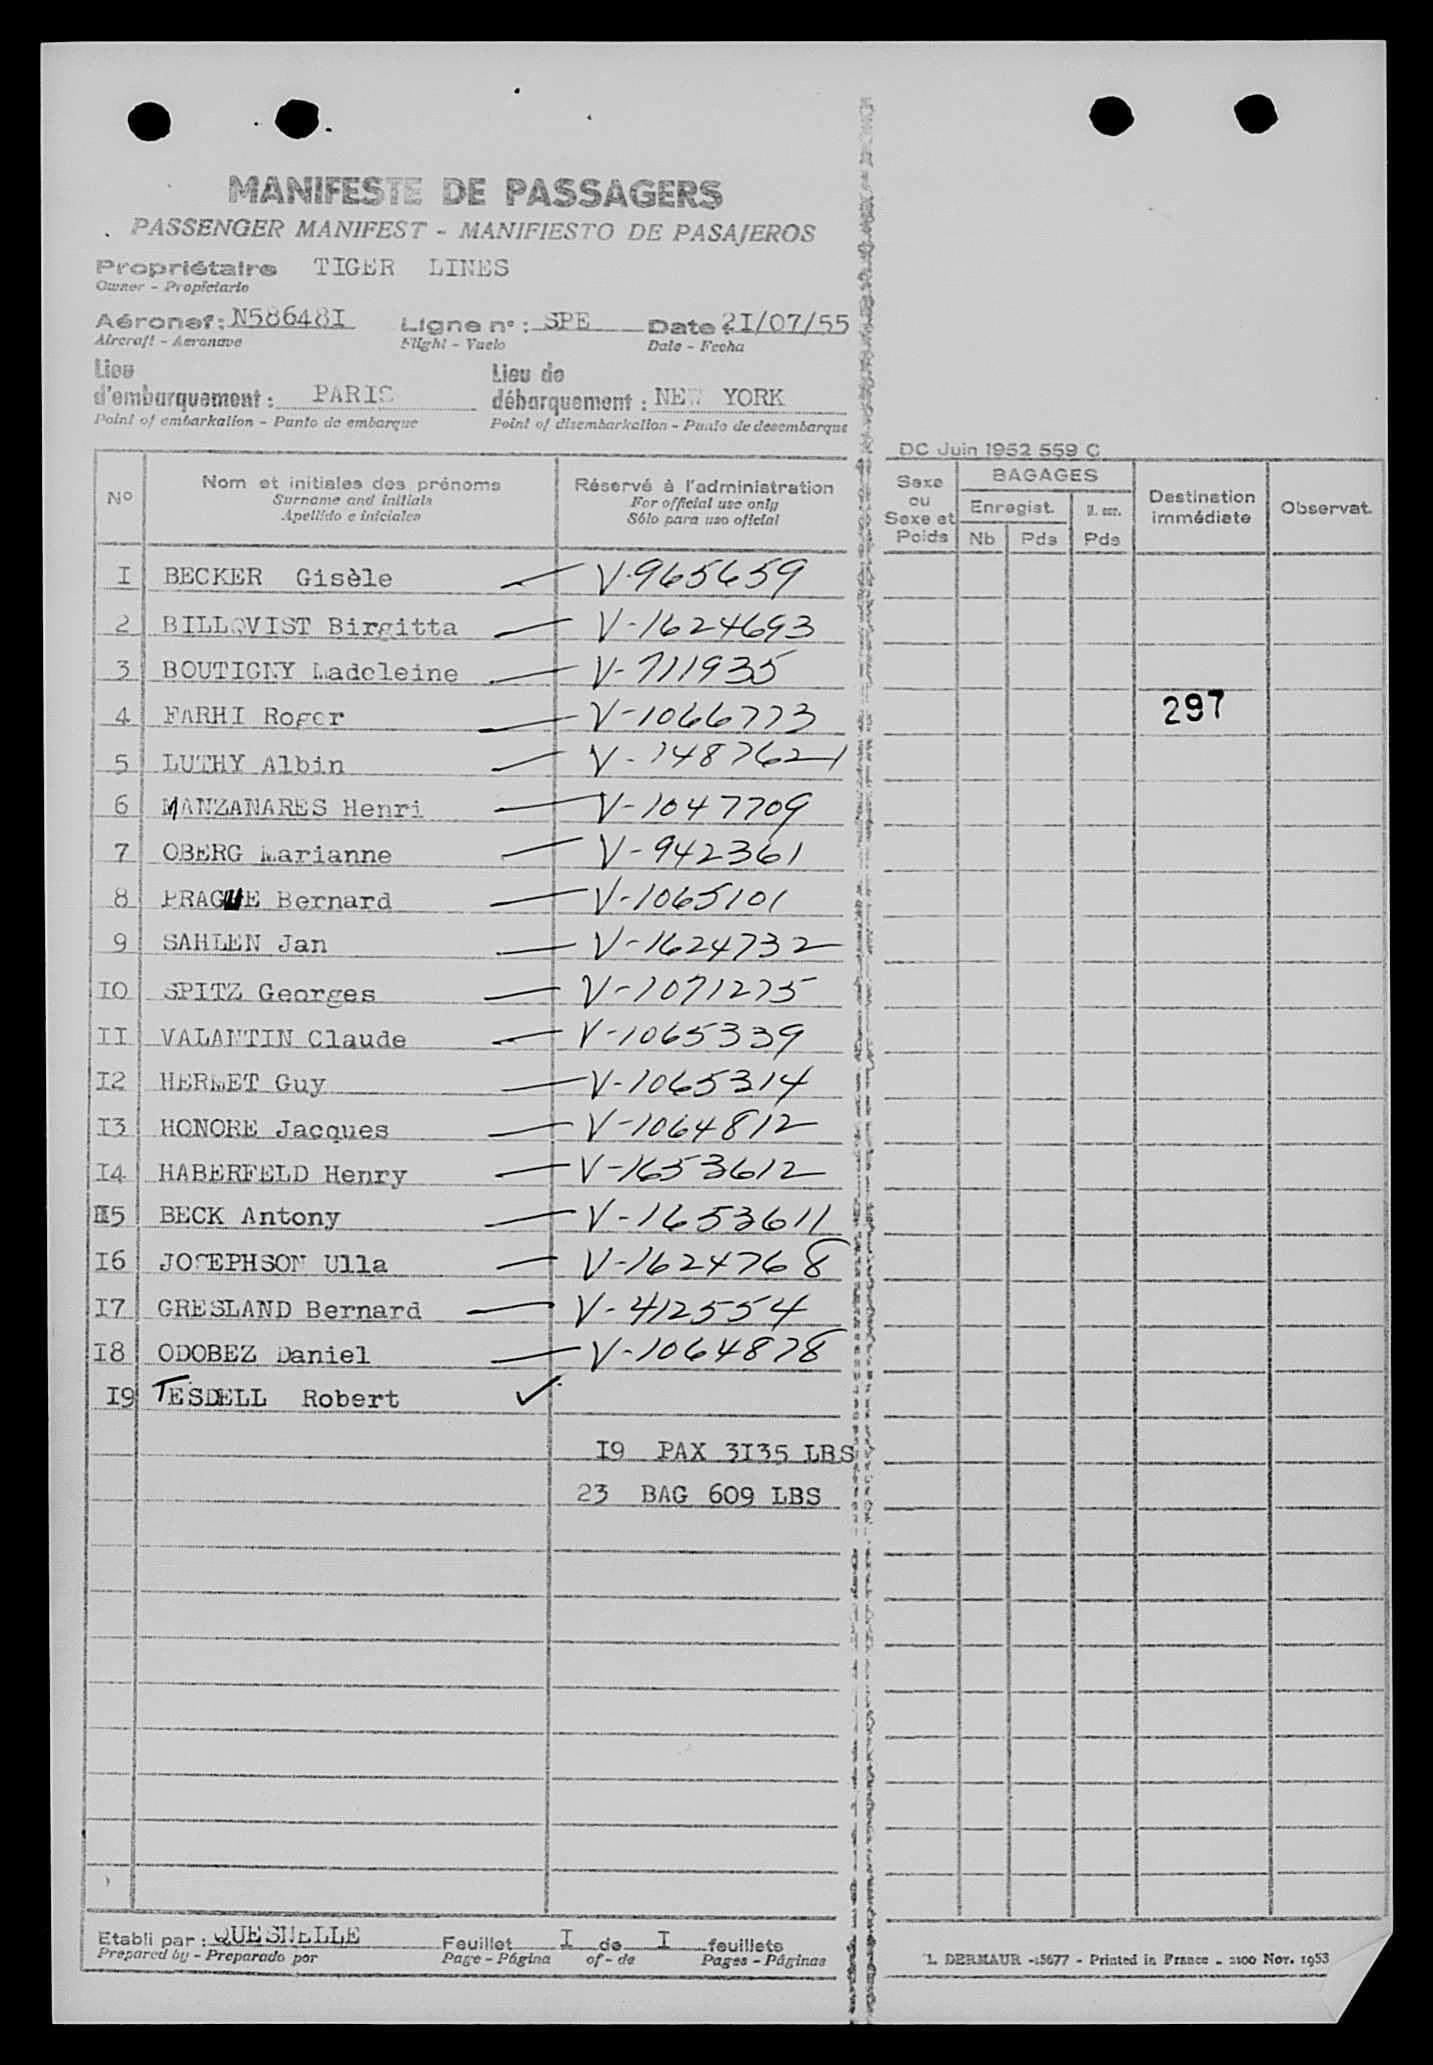 MANIFESTE DE PASSAGERS
PASSENGER MANIFEST - MANIFIESTO DE PASAJEROS
Propriétaire TIGER LINES
Owner - Propietario
Aéronef: N58648I Ligne n° : SPE Date : 2I/07/55
Aircraft - Aeronave Flight - Vuelo Date - Fecha
Lieu d'embarquement : PARIS Lieu de débarquement : NEW YORK
Point of embarkation - Punto de embarque Point of disembarkation - Punto de desembarque
DC Juin 1952 559 C
N° Nom et initiales des prénoms Réservé à l'administration Sexe ou Sexe et Poids BAGAGES Destination immédiate Observat.
Surname and initials For official use only Enregist.
Apellido e iniciales Sólo para uso oficial Nb Pds Pds
I BECKER Gisèle V-965659
2 BILLQVIST Birgitta V-1624693
3 BOUTIGNY Madeleine V-711935
4 FARHI Roger V-1066773 297
5 LUTHY Albin V-1487621
6 MANZANARES Henri V-1047709
7 OBERG Marianne V-942361
8 PRAGUE Bernard V-1065101
9 SAHLEN Jan V-1624732
IO SPITZ Georges V-1071275
II VALANTIN Claude V-1065339
I2 HERMET Guy V-1065314
I3 HONORE Jacques V-1064812
I4 HABERFELD Henry V-1653612
I5 BECK Antony V-1653611
I6 JOSEPHSON Ulla V-1624768
I7 GRESLAND Bernard V-412554
I8 ODOBEZ Daniel V-1064878
I9 TESDELL Robert ✓
I9 PAX 3I35 LBS
23 BAG 609 LBS
Etabli par : QUESNELLE Feuillet I de I feuillets
Prepared by - Preparado por Page - Página of - de Pages - Páginas
L. DERMAUR -15677 - Printed in France - 2100 Nov. 1953